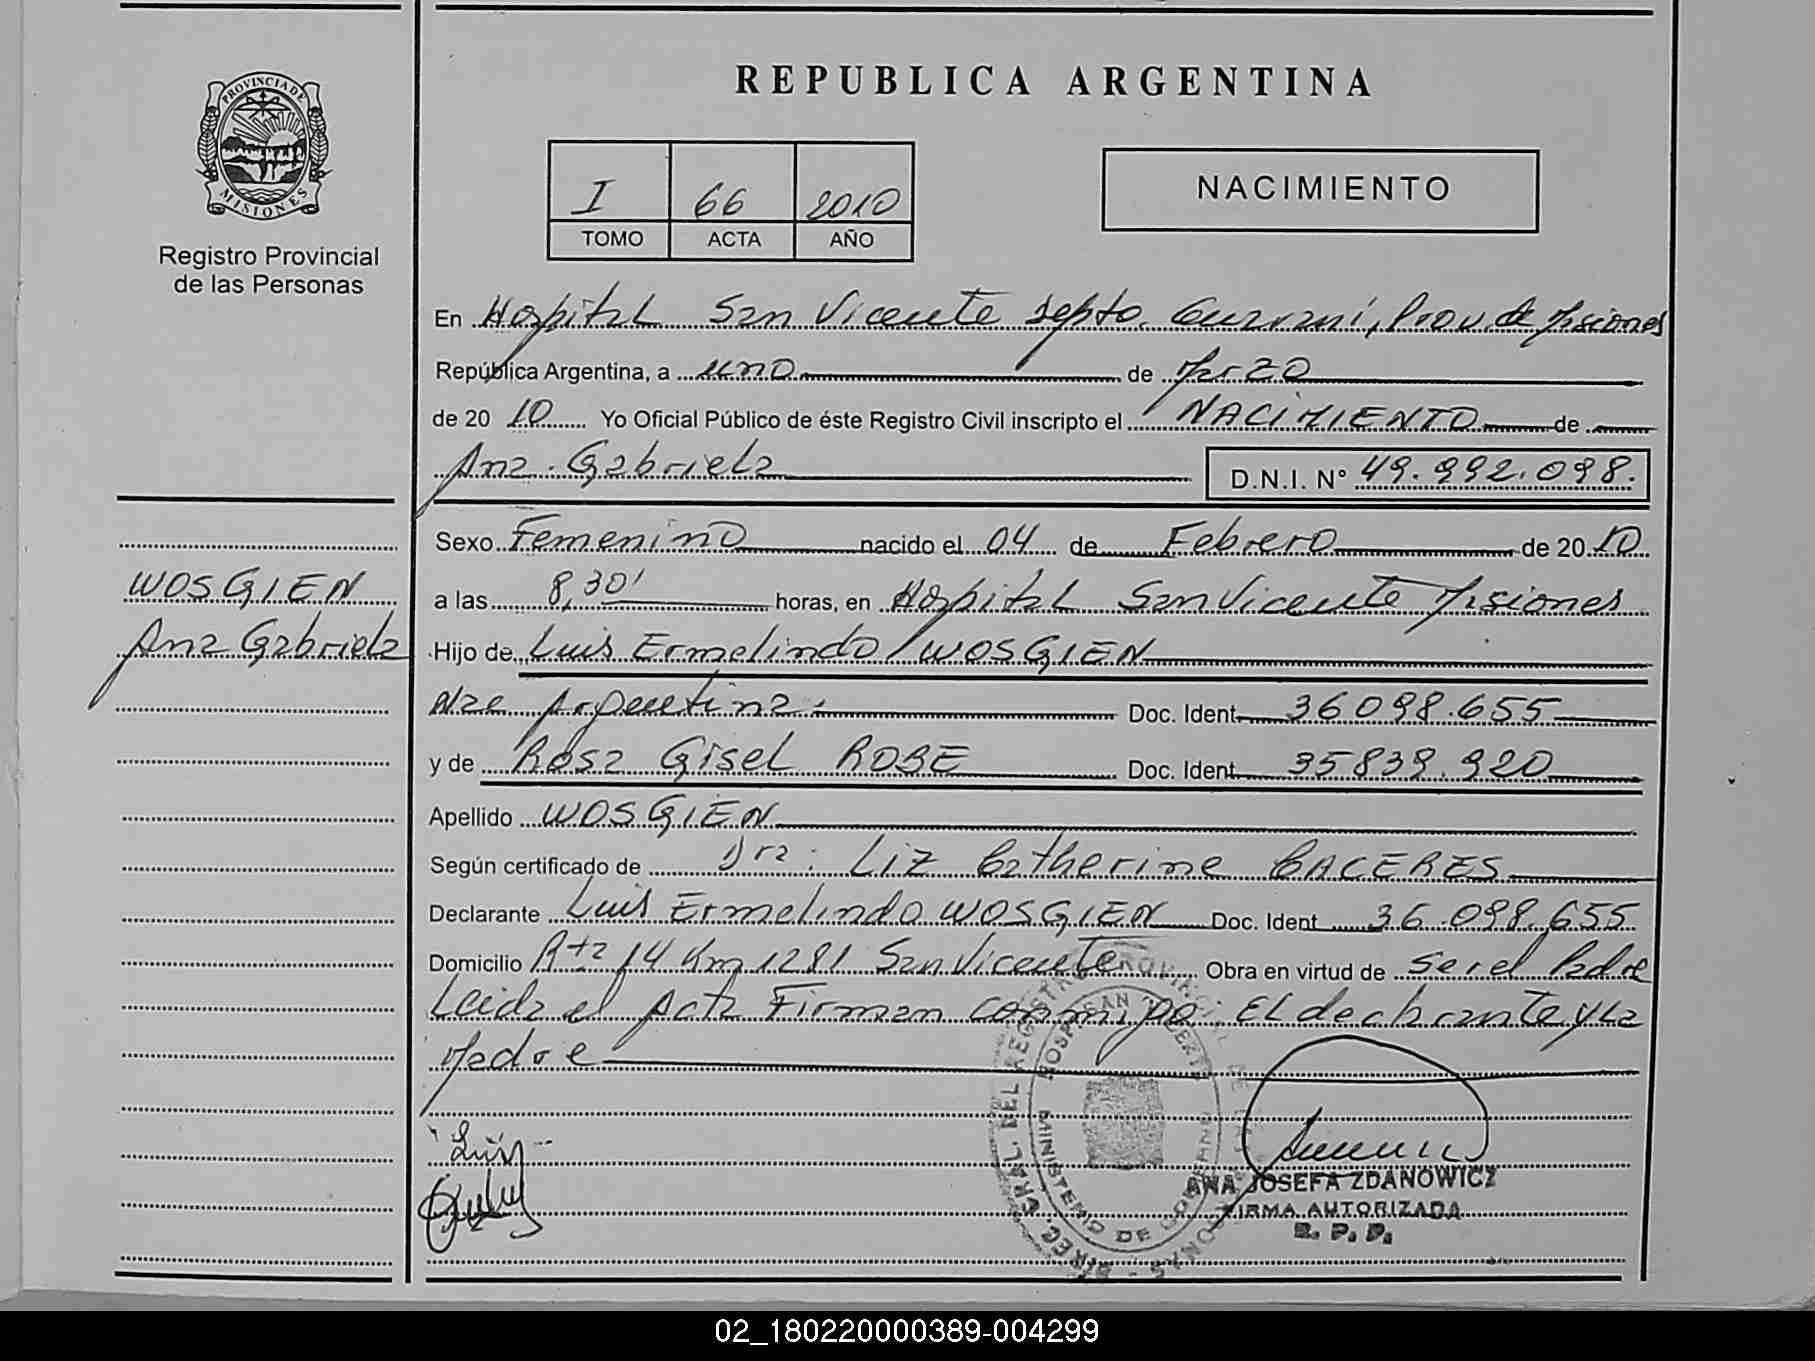 REPUBLICA ARGENTINA
PROVINCIA DE
MISIONES
Registro Provincial
de las Personas
I 66 2010
TOMO ACTA AÑO
NACIMIENTO
En Hospital San Vicente Depto. Guaraní, Prov. de Misiones
República Argentina, a uno de Marzo
de 20 10 Yo Oficial Público de éste Registro Civil inscripto el NACIMIENTO de
Ana Gabriela D.N.I. N° 49.992.098.
Sexo Femenino nacido el 04 de Febrero de 20 10
WOSGIEN
Ana Gabriela
a las 8,30' horas, en Hospital San Vicente Misiones
Hijo de Luis Ermelindo WOSGIEN
Nac Argentina. Doc. Ident. 36098.655
y de Rosa Gisel ROSE Doc. Ident. 35839.920
Apellido WOSGIEN
Según certificado de Dra: Liz Catherine CACERES
Declarante Luis Ermelindo WOSGIEN Doc. Ident. 36.098.655
Domicilio Rta 14 Km 1281 San Vicente Obra en virtud de ser el Padre
Leida el Acta Firman conmigo: El declarante y la
Madre
Luis
DIREC. GRAL. DEL REGISTRO PROVINCIAL DE LAS PERSONAS
HOSP. SAN VICENTE
MINISTERIO DE GOBIERNO
ANA JOSEFA ZDANOWICZ
FIRMA AUTORIZADA
R. P. P.
02_180220000389-004299